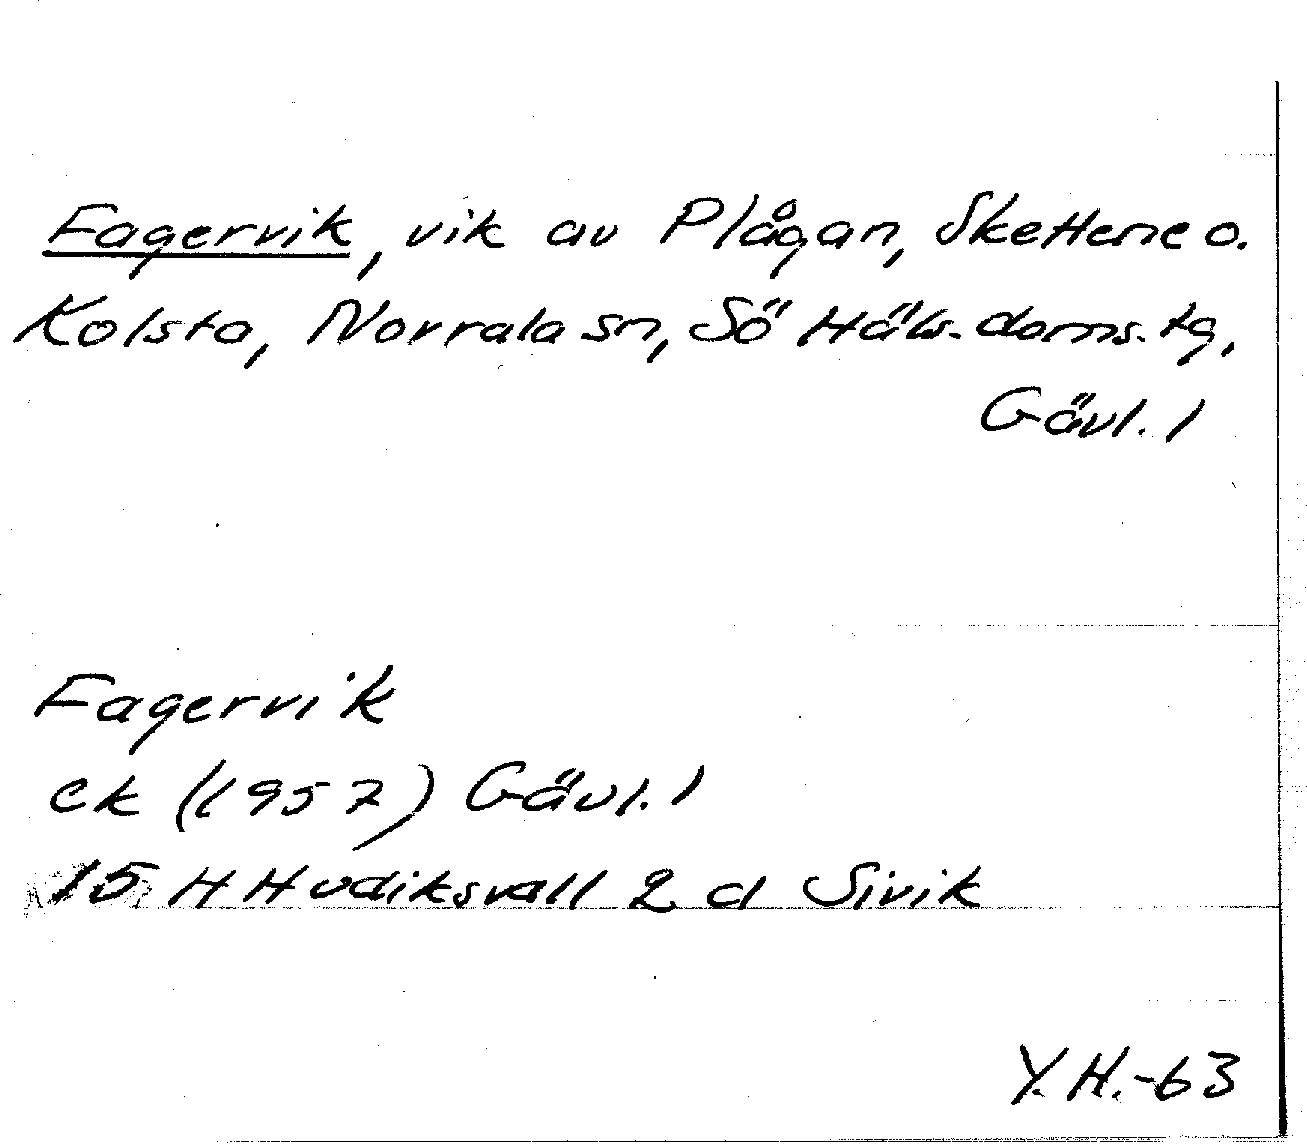 Fagervik, vik av Plågan, Skettene o.
Kolsta, Norrala sn, Sö Häls. doms. tg,
Gävl. l
Fagervik
ek (1957) Gävl. l
15 H Hudiksvall 2 d Sivik
Y.H.-63